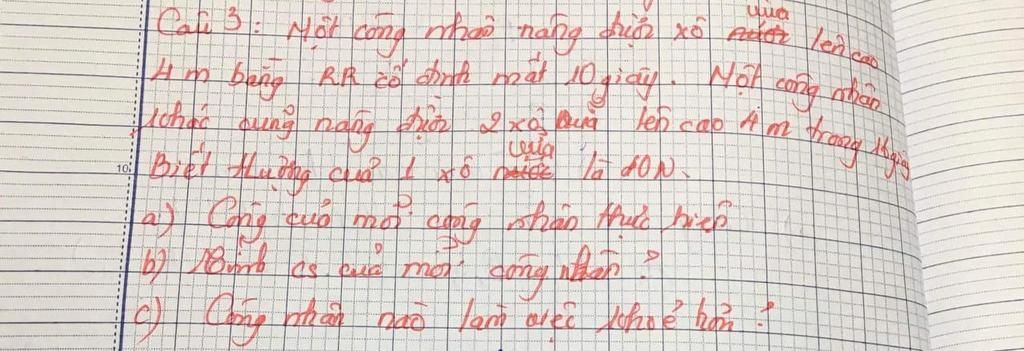 Câu 3: Một công nhân nâng được xô vữa lên cao
4m bằng RR cố định mất 10 giây. Một công nhân
khác cũng nâng được 2 xô vữa lên cao 4m trong 16 giây
Biết trọng của 1 xô vữa là 10N.
a) Công của mỗi công nhân thực hiện
b) Tính cs của mỗi công nhân?
c) Công nhân nào làm việc khoẻ hơn?
10